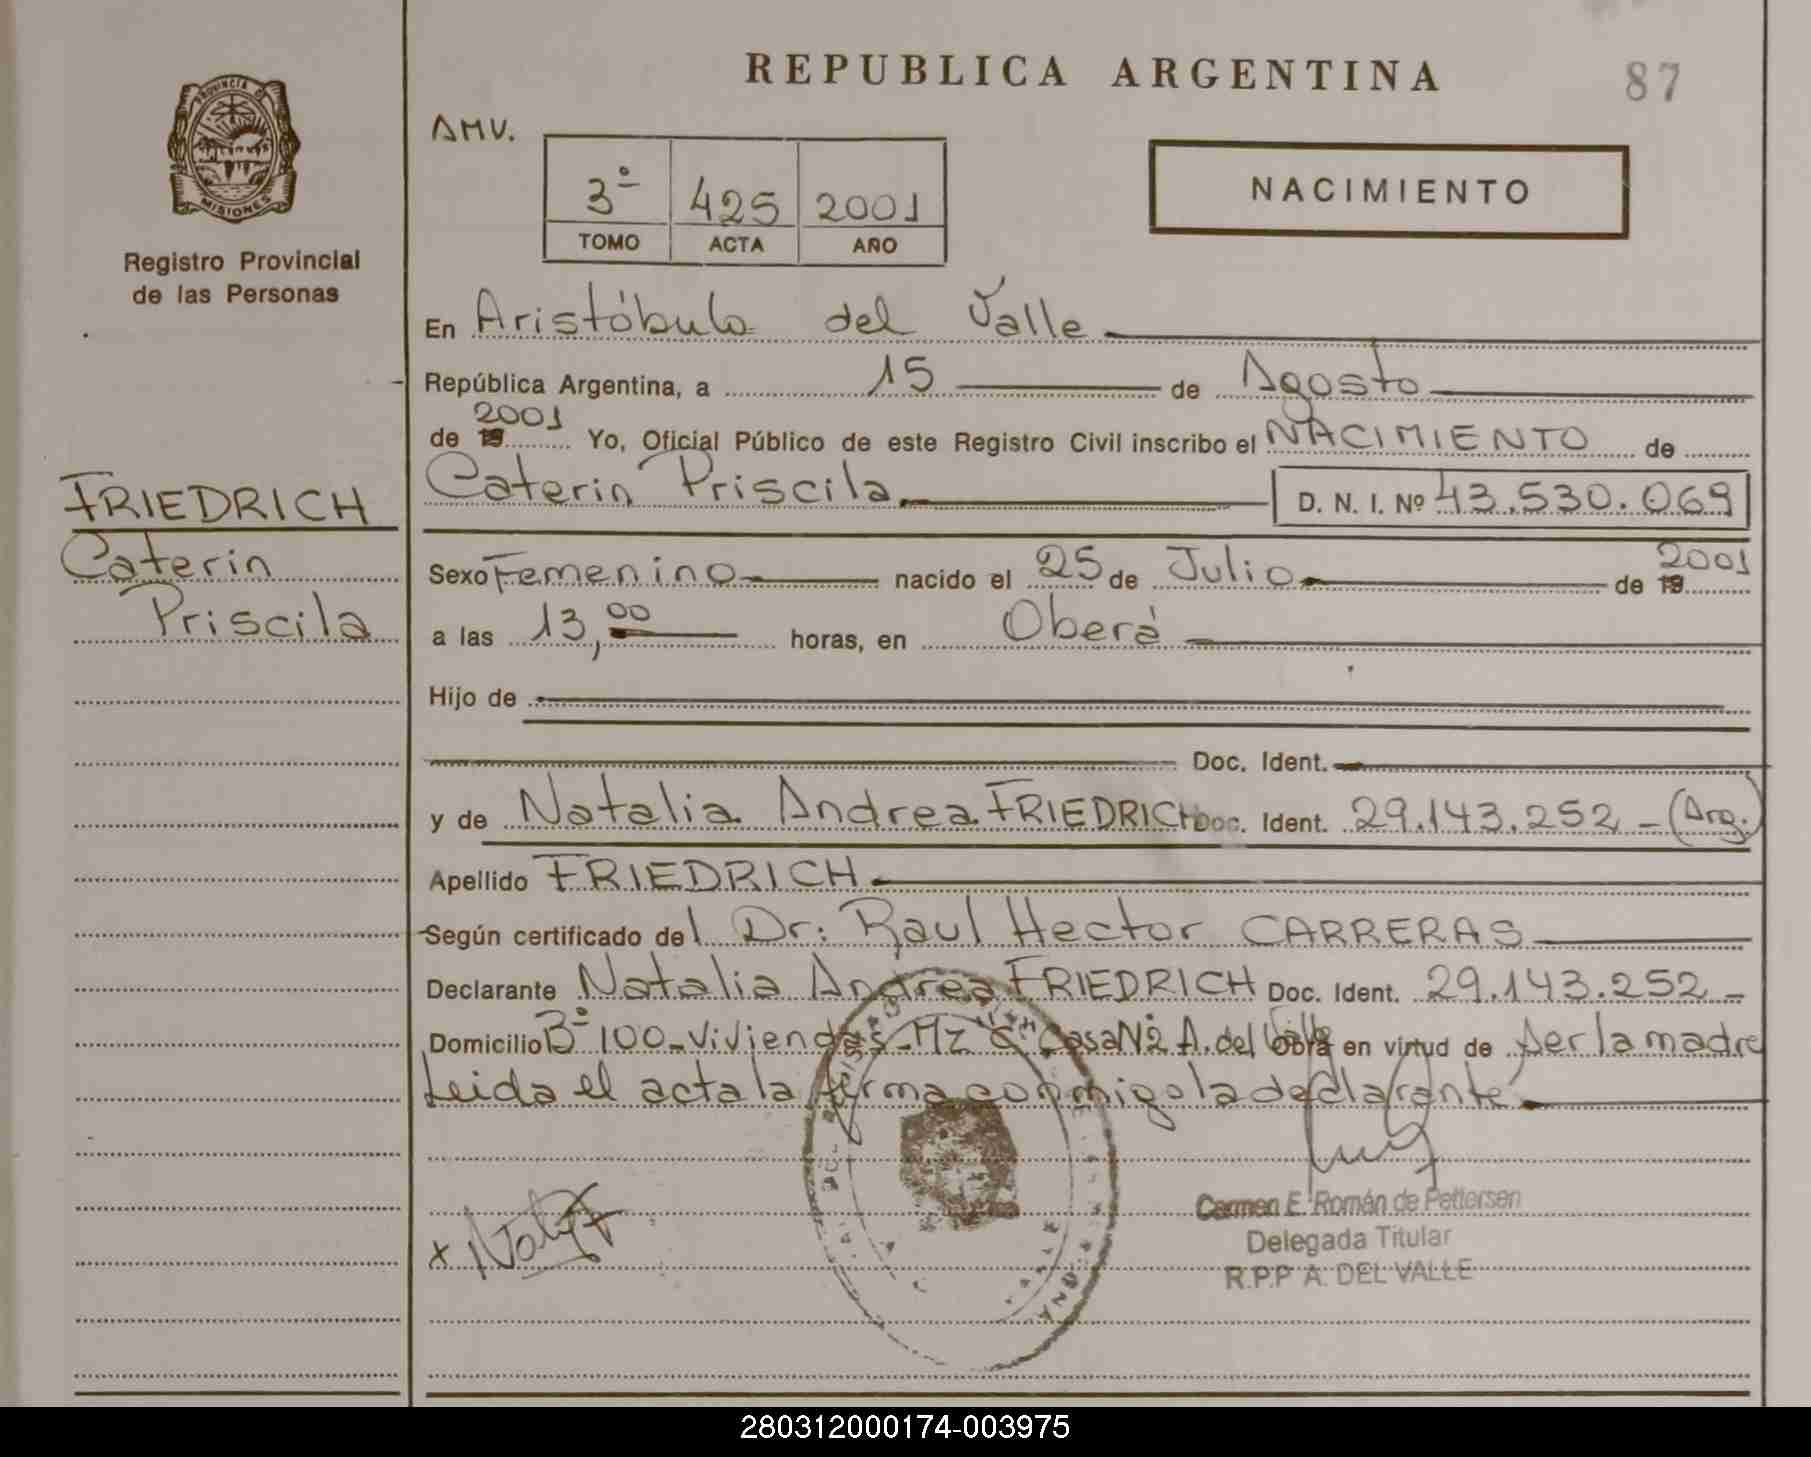 REPUBLICA ARGENTINA
87
PROVINCIA DE
MISIONES
Registro Provincial
de las Personas
AMV.
3º 425 2001
TOMO ACTA AÑO
NACIMIENTO
En Aristóbulo del Valle
República Argentina, a 15 de Agosto
de 19 2001 Yo, Oficial Público de este Registro Civil inscribo el NACIMIENTO de
Caterin Priscila D. N. I. Nº 43.530.069
FRIEDRICH
Caterin
Priscila
Sexo Femenino nacido el 25 de Julio de 19 2001
a las 13,00 horas, en Oberá
Hijo de
Doc. Ident.
y de Natalia Andrea FRIEDRICH Doc. Ident. 29.143.252 - (Arg.)
Apellido FRIEDRICH
Según certificado del Dr: Raul Hector CARRERAS
Declarante Natalia Andrea FRIEDRICH Doc. Ident. 29.143.252 -
Domicilio Bº 100 - Viviendas - Mz "C" Casa Nº2 A. del Valle Obra en virtud de ser la madre
Leida el acta la firma conmigo la declarante
x Naty F
Carmen E. Román de Pettersen
Delegada Titular
R.P.P A. DEL VALLE
280312000174-003975